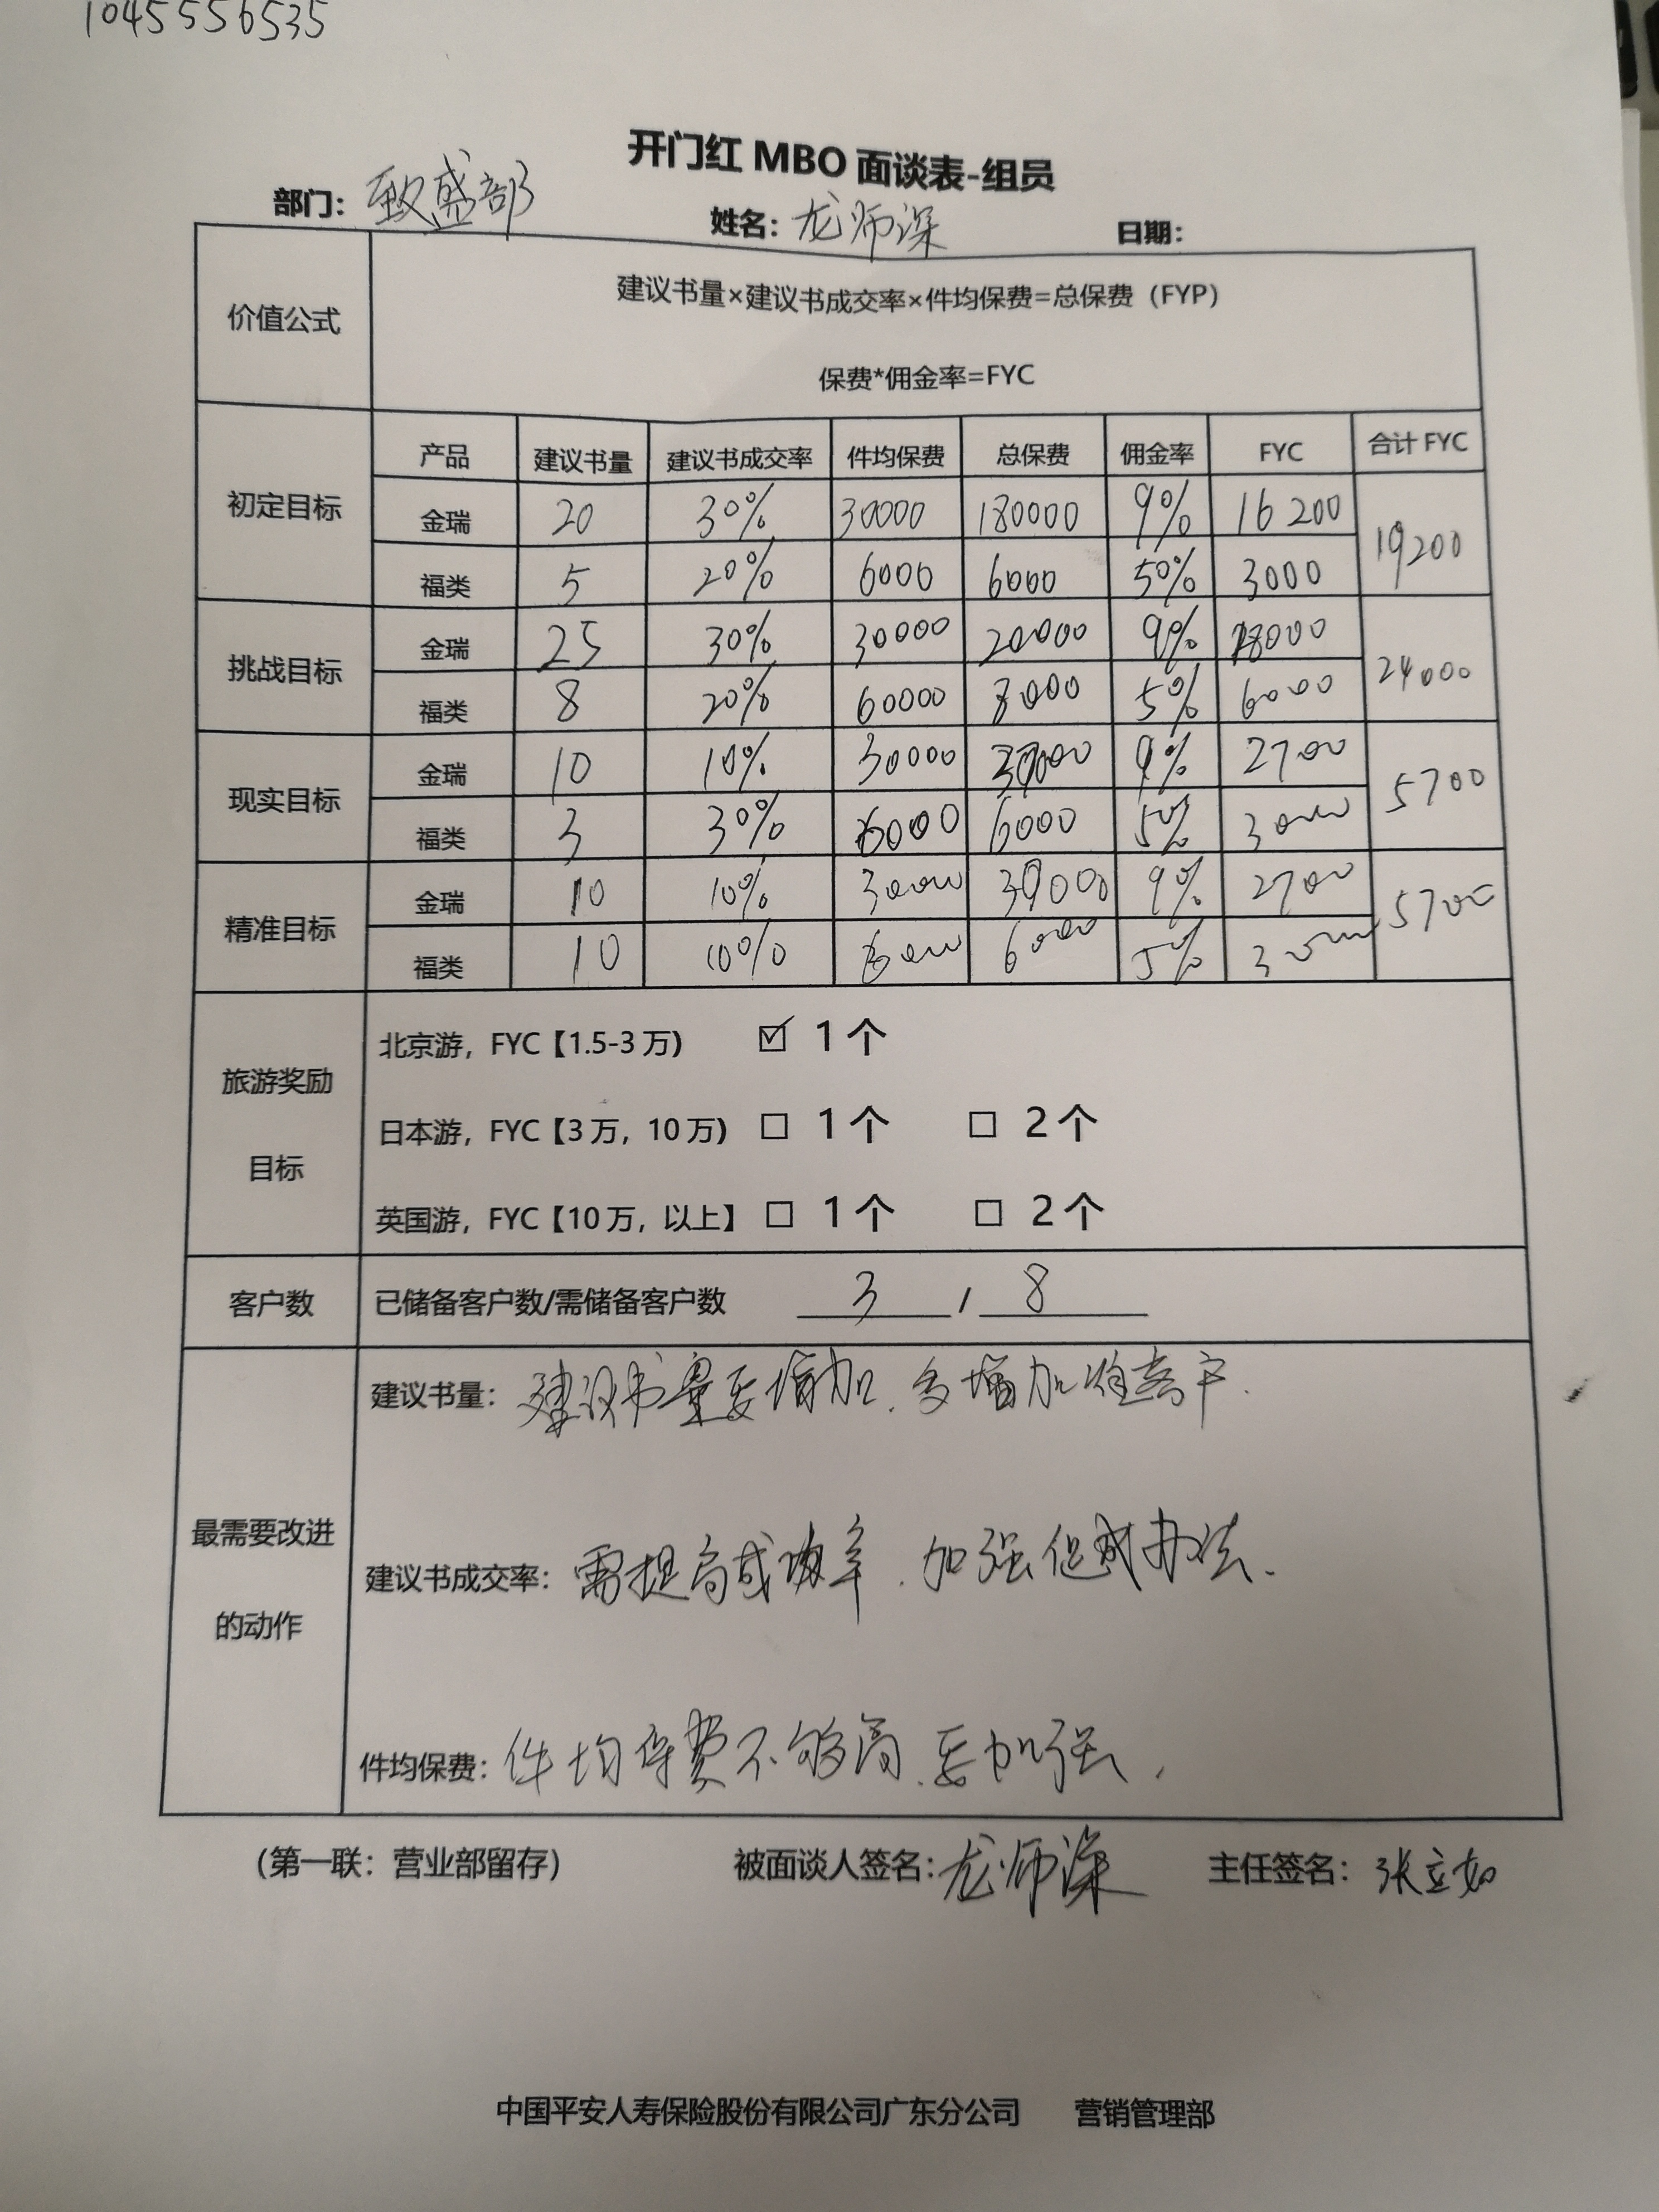 1045556535
开门红 MBO 面谈表-组员
部门：致盛部 姓名：龙师深 日期：
价值公式 建议书量×建议书成交率×件均保费=总保费（FYP）
保费*佣金率=FYC
初定目标 产品 建议书量 建议书成交率 件均保费 总保费 佣金率 FYC 合计 FYC
金瑞 20 30% 30000 180000 9% 16200 19200
福类 5 20% 6000 6000 50% 3000
挑战目标 金瑞 25 30% 30000 20000 9% 18000 24000
福类 8 20% 60000 8000 5% 6000
现实目标 金瑞 10 10% 30000 30000 9% 2700 5700
福类 3 30% 6000 6000 5% 3000
精准目标 金瑞 10 10% 30000 30000 9% 2700 5700
福类 10 10% 6000 6000 5% 3000
旅游奖励目标
北京游，FYC【1.5-3 万) ☑ 1 个
日本游，FYC【3 万，10 万) □ 1 个 □ 2 个
英国游，FYC【10 万，以上】 □ 1 个 □ 2 个
客户数 已储备客户数/需储备客户数 3 / 8
最需要改进的动作
建议书量：建议书量要增加，多增加准客户.
建议书成交率：需提高成功率，加强促成办法.
件均保费：件均保费不够高，要加强，
（第一联：营业部留存） 被面谈人签名：龙师深 主任签名：张立如
中国平安人寿保险股份有限公司广东分公司 营销管理部